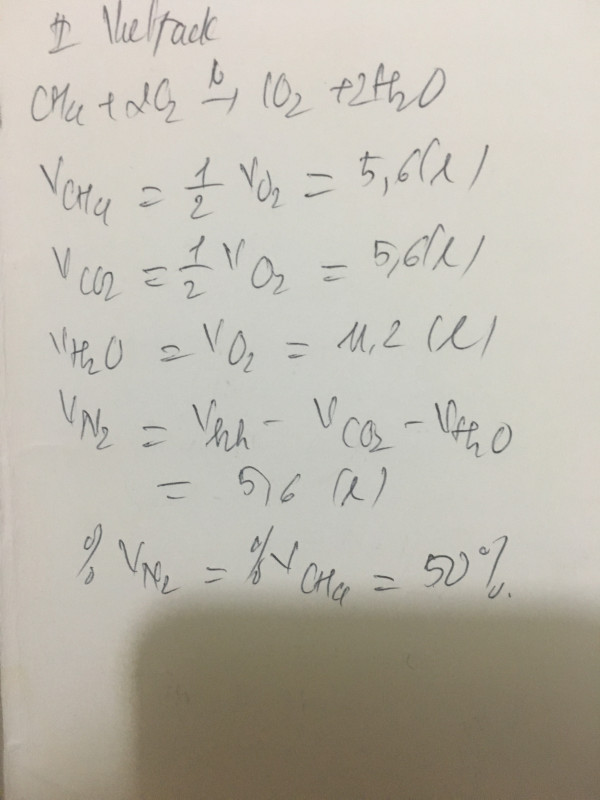 CH4 + 2O2 t° → CO2 + 2H2O
VCH4 = 1/2 VO2 = 5,6 (l)
VCO2 = 1/2 VO2 = 5,6 (l)
VH2O = VO2 = 11,2 (l)
VN2 = Vhh - VCO2 - VH2O
= 5,6 (l)
% VN2 = %VCH4 = 50%.